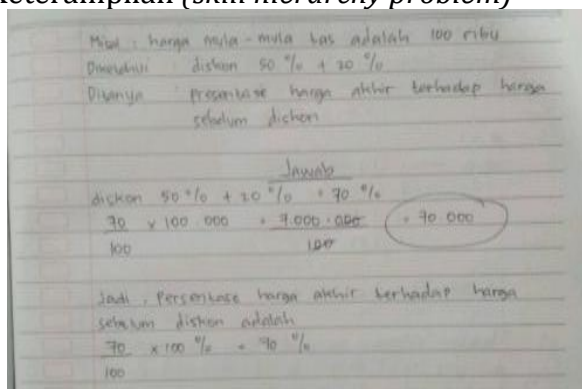 Keterampilan (skill hierarchy problem)
Misal : harga mula-mula tas adalah 100 ribu
Diketahui diskon 50 % + 20 %
Ditanya presentase harga akhir terhadap harga
sebelum diskon
Jawab
diskon 50 % + 20 % = 70 %
70 x 100.000 = 7.000.000 = 70.000
100 100
Jadi, Persentase harga akhir terhadap harga
sebelum diskon adalah
70 x 100 % = 70 %
100